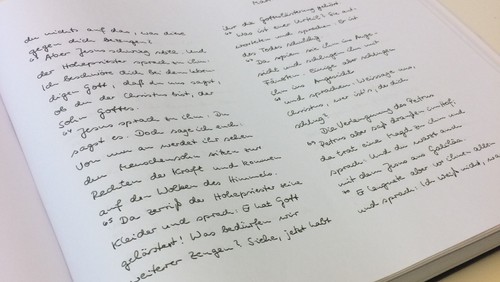 du nichts auf das, was diese
gegen dich bezeugen?
63 Aber Jesus schwieg stille. Und
der Hohepriester sprach zu ihm:
Ich beschwöre dich bei dem leben
digen Gott, daß du uns sagst,
ob du der Christus bist, der
Sohn Gottes.
64 Jesus sprach zu ihm: Du
sagst es. Doch sage ich euch:
Von nun an werdet ihr sehen
den Menschensohn sitzen zur
Rechten der Kraft und kommen
auf den Wolken des Himmels.
65 Da zerriß der Hohepriester seine
Kleider und sprach: Er hat Gott
gelästert! Was bedürfen wir
weiterer Zeugen? Siehe, jetzt habt
ihr die Gotteslästerung gehört
66 Was ist euer Urteil? Sie ant-
worteten und sprachen: Er ist
des Todes schuldig.
67 Da spieen sie ihm ins Ange-
sicht und schlugen ihn mit
Fäusten. Einige aber schlugen
ihn ins Angesicht
68 und sprachen: Weissage uns,
Christus, wer ist's, der dich
schlug?
Die Verleugnung des Petrus
69 Petrus aber saß draußen im Hof;
da trat eine Magd zu ihm und
sprach: Und du warst auch
mit dem Jesus aus Galiläa
70 Er leugnete aber vor ihnen allen
und sprach: Ich weiß nicht, was